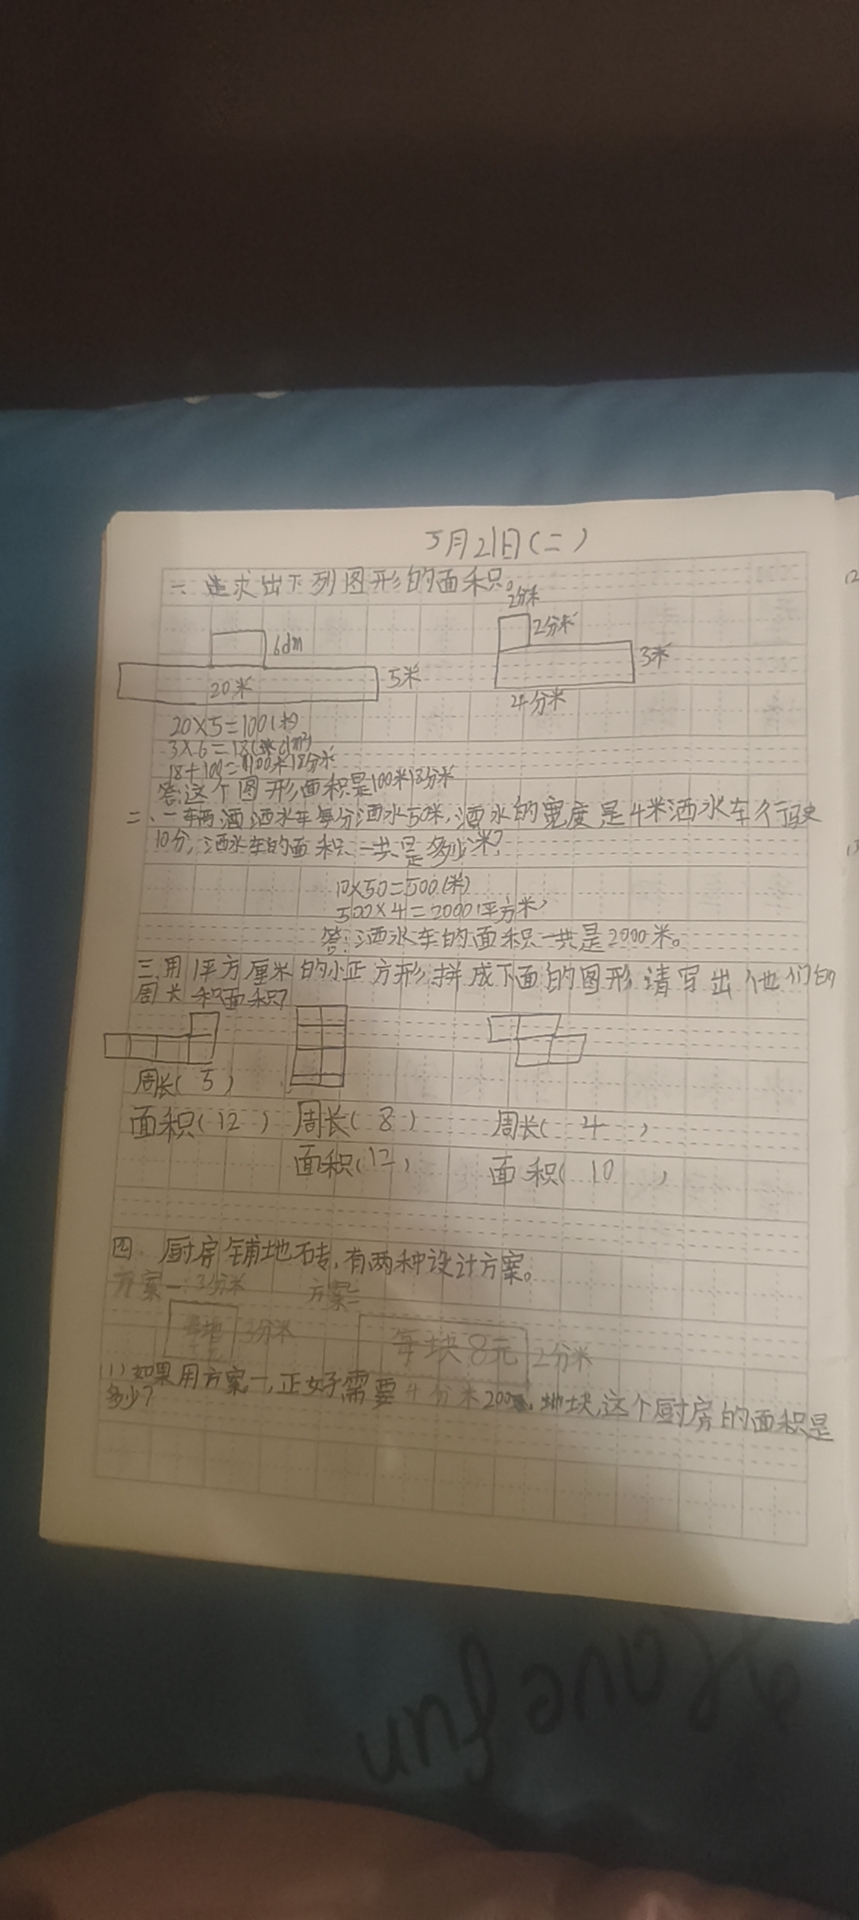 5月21日(二)
一、求出下列图形的面积。
2分米
6dm
2分米
5米
20米
3米
4分米
20×5=100(米)
3×6=18(dm²)
18+100=100米18分米
答:这个图形面积是100米18分米
二、一辆洒水车每分洒水50米,洒水的宽度是4米洒水车行驶
10分,洒水车的面积一共是多少米?
10×50=500(米)
500×4=2000(平方米)
答:洒水车的面积一共是2000米。
三、用1平方厘米的小正方形,拼成下面的图形,请写出他们的
周长和面积?
周长( 5 )
面积(12 ) 周长( 8 ) 周长( 4 )
面积(12) 面积( 10 )
四、厨房铺地砖,有两种设计方案。
方案一:3分米 方案二
3分米
每块8元 2分米
(1)如果用方案一,正好需要4分米200 地块,这个厨房的面积是
多少?
Have fun